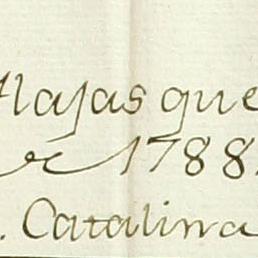 Alajas que
de 1788.
. Catalina